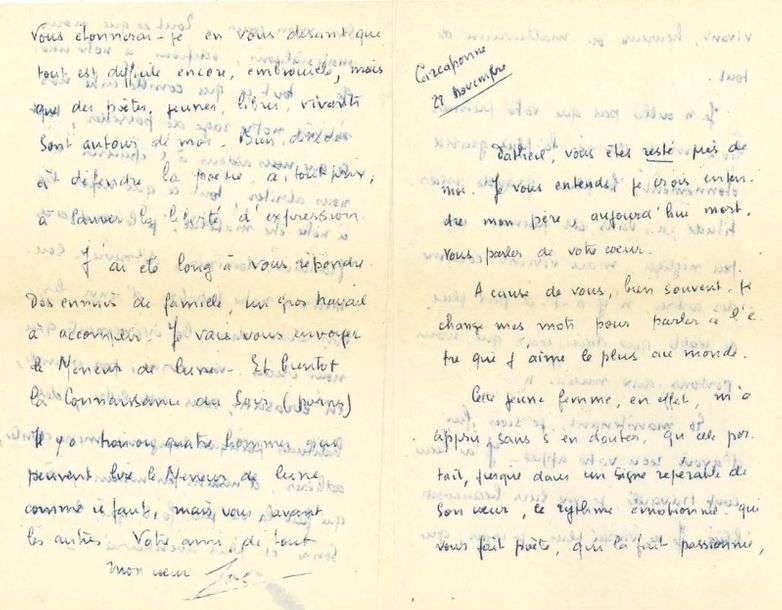 Vous étonnerai-je en vous disant que
tout est difficile encore, embrouillé, mais
que des poètes, jeunes, libres, vivants
sont autour de moi. Bien décidés
à défendre la poésie à tout prix,
à sauver la liberté d'expression.
J'ai été long à vous répondre.
Des ennuis de famille, un gros travail
à accomplir. Je vais vous envoyer
le Meneur de lune. Et bientôt
la Connaissance du Soir (poèmes)
Il y a trois ou quatre hommes qui
peuvent lire le Meneur de lune
comme il faut, mais vous, avant
les autres. Votre ami de tout
mon cœur
Carcassonne
27 novembre
vous êtes resté près de
moi. Je vous entends, je crois enten-
dre mon père, aujourd'hui mort,
vous parler de votre cœur.
A cause de vous, bien souvent, je
change mes mots pour parler à l'ê-
tre que j'aime le plus au monde.
Cette jeune femme, en effet, m'a
appris, sans s'en douter, qu'elle por-
tait, jusque dans un signe repérable de
son cœur, ce rythme émotionné qui
vous fait poète, qui la fait passionnée,